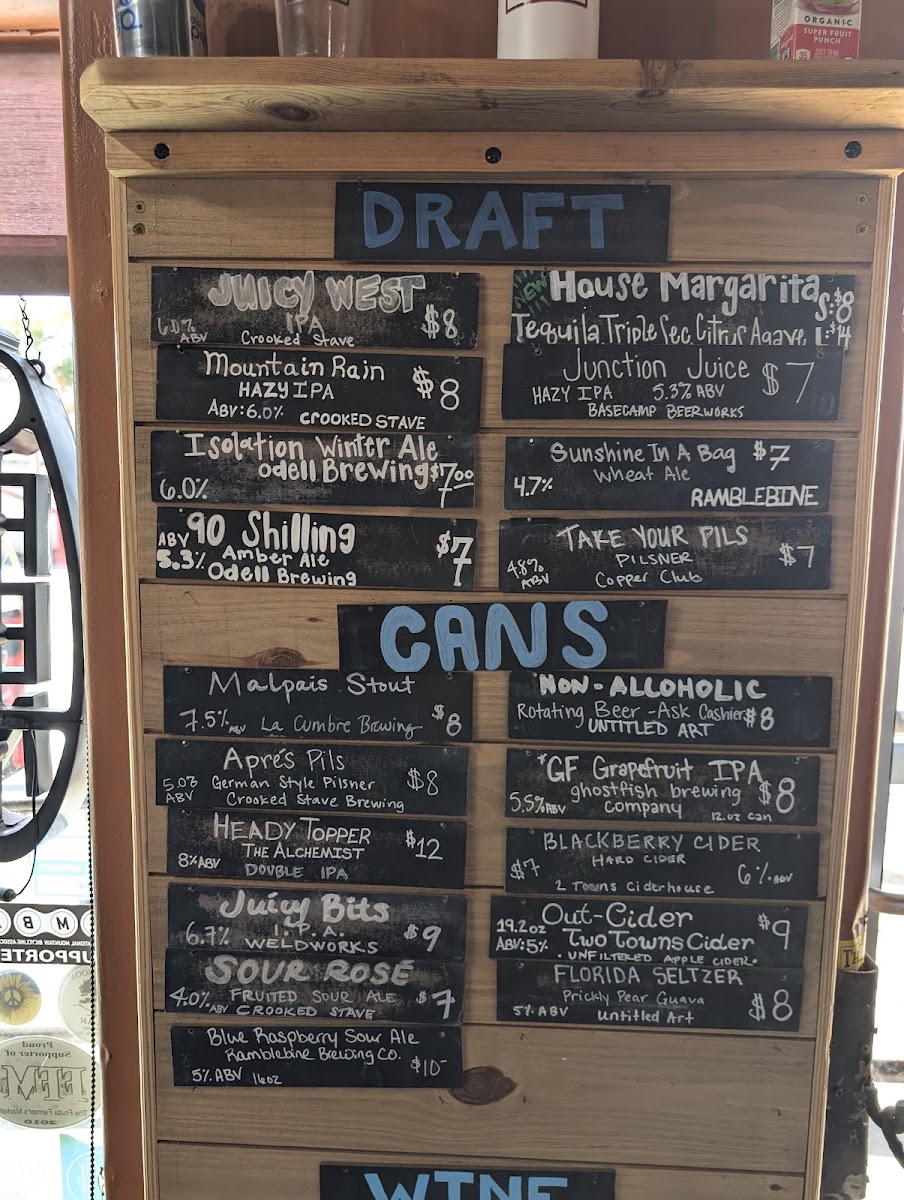 ORGANIC
SUPER FRUIT
PUNCH
DRAFT
JUICY WEST
IPA
6.0%
ABV
Crooked Stave
$8
Mountain Rain
HAZY IPA
ABV: 6.0%
CROOKED STAVE
$8
Isolation Winter Ale
Odell Brewing
$7.00
6.0%
ABV 90 Shilling
5.3% Amber Ale
Odell Brewing
$7
NEW
House Margarita
S:$8
Tequila Triple Sec Citrus Agave L:$14
Junction Juice
HAZY IPA 5.3% ABV
BASECAMP BEERWORKS
$7
Sunshine In A Bag $7
Wheat Ale
4.7%
RAMBLEBINE
TAKE YOUR PILS
PILSNER
4.8%
ABV
Copper Club
$7
CANS
Malpais Stout
7.5% ABV La Cumbre Brewing
$8
Aprés Pils
5.0%
ABV
German Style Pilsner
Crooked Stave Brewing
$8
HEADY TOPPER
THE ALCHEMIST
8% ABV
DOUBLE IPA
$12
Juicy Bits
6.7% I.P.A.
WELDWORKS
$9
SOUR ROSÉ
4.0% ABV FRUITED SOUR ALE
CROOKED STAVE
$7
Blue Raspberry Sour Ale
Ramblebine Brewing Co.
5% ABV 16oz
$10-
NON-ALCOHOLIC
Rotating Beer - Ask Cashier $8
UNTITLED ART
*GF Grapefruit IPA
ghostfish brewing
5.5% ABV company
12.oz can
$8
BLACKBERRY CIDER
HARD CIDER
$7
6% ABV
2 Towns Ciderhouse
Out-Cider
19.2oz
ABV: 5% Two Towns Cider
• UNFILTERED APPLE CIDER •
$9
FLORIDA SELTZER
Prickly Pear Guava
5% ABV Untitled Art
$8
WINE
Proud
Supporter of
The Fruita Farmer's Market
2010